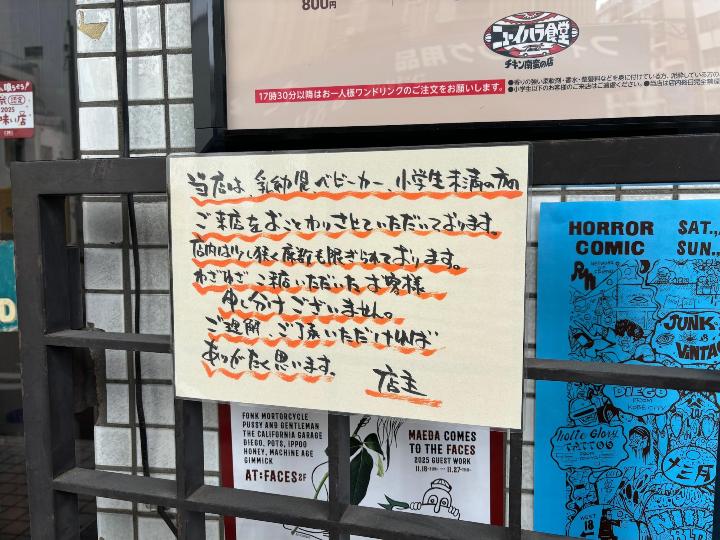 800円
ニューイバラ食堂
チキン南蛮の店
17時30分以降はお一人様ワンドリンクのご注文をお願いします。
2025
当店は、乳幼児、ベビーカー、小学生未満の方の
ご来店をおことわりさせていただいております。
店内は少し狭く席数も限ぎられております。
わざわざご来店いただいたお客様
申し分けございません。
ご理解、ご了承いただければ
ありがたく思います。
店主
HORROR SAT.,
COMIC SUN.,
JUNK
VINTA
DIEGO
FROM
KOBE CITY
Hotte Glory
TATTOO
FONK MORTORCYCLE
PUSSY AND GENTLEMAN
THE CALIFORNIA GARAGE
DIEGO, POTS, IPPOO
HONEY, MACHINE AGE
GIMMICK
AT:FACES 2F
MAEDA COMES
TO THE FACES
2025 GUEST WORK